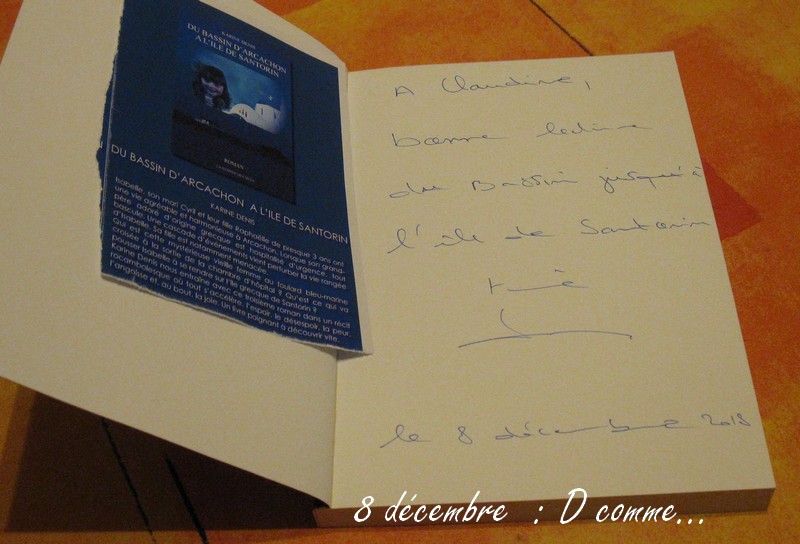 KARINE DENIS
DU BASSIN D'ARCACHON
A L'ILE DE SANTORIN
ROMAN
DU BASSIN D'ARCACHON A L'ILE DE SANTORIN
KARINE DENIS
Isabelle, son mari Cyril et leur fille Raphaëlle de presque 3 ans ont
une vie agréable et harmonieuse à Arcachon. Lorsque son grand-
père adoré d'origine grecque est hospitalisé d'urgence, tout
bascule. Une cascade d'événements vient perturber la vie rangée
d'Isabelle. Sa fille est notamment menacée.
Qui est cette mystérieuse vieille femme au foulard bleu-marine
croisée à la sortie de la chambre d'hôpital ? Qu'est ce qui va
pousser Isabelle à se rendre sur l'île grecque de Santorin ?
Karine Denis nous entraîne avec ce troisième roman dans un récit
rocambolesque où tout s'accélère, l'espoir, le désespoir, la peur,
l'angoisse et, au bout, la joie. Un livre poignant à découvrir vite.
A Claudine,
bonne lecture
du Bassin jusqu'à
l'île de Santorin
le 8 décembre 2018
8 décembre : D comme...